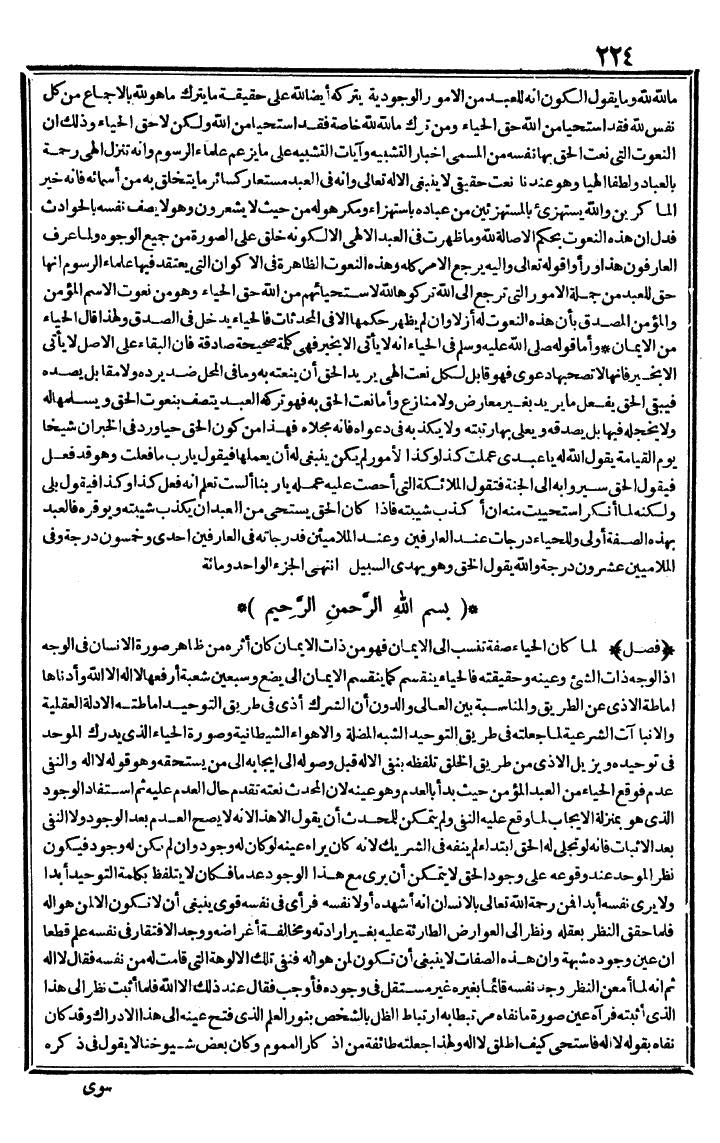 ٢٢٤
مالله لله وما يقول الكون انه للعبد من الامور الوجودية يتركه أيضا لله على حقيقة ما يترك ماهو لله بالاجماع من كل
نفس لله فقد استحيا من الله حق الحياء ومن ترك مالله لله خاصة فقد استحيا من الله ولكن لا حق الحياء وذلك ان
النعوت التى نعت الحق بها نفسه من المسمى اخبار التشبيه وآيات التشبيه على ما يزعم علماء الرسوم وانه تنزل الهى رحمة
بالعباد ولطفا الهيا وهو عندنا نعت حقيقى لا ينبغى الا له تعالى وانه فى العبد مستعار كسائر ما يتخلق به من أسمائه فانه خير
الماكرين والله يستهزئ بالمستهزئين من عباده باستهزاء ومكر هو له من حيث لا يشعرون وهو لا يصف نفسه بالحوادث
فدل ان هذه النعوت بحكم الاصالة لله وما ظهرت فى العبد الالهى الا لكونه خلق على الصورة من جميع الوجوه ولما عرف
العارفون هذا ورأوا قوله تعالى واليه يرجع الامر كله وهذه النعوت الظاهرة فى الاكوان التى يعتقد فيها علماء الرسوم انها
حق للعبد من جملة الامور التى ترجع الى الله تركوها لله لاستحيائهم من الله حق الحياء وهو من نعوت الاسم المؤمن
والمؤمن المصدق بأن هذه النعوت له أزلا وان لم يظهر حكمها الا فى المحدثات فالحياء يدخل فى الصدق ولهذا قال الحياء
من الايمان * وأما قوله صلى الله عليه وسلم فى الحياء انه لا يأتى الا بخير فهى كلمة صحيحة صادقة فان البقاء على الاصل لا يأتى
الا بخير فانها لا تصحبها دعوى فهو قابل لكل نعت الهى يريد الحق أن ينعته به وما فى المحل ضد يرده ولا مقابل يصده
فيبقى الحق يفعل ما يريد بغير معارض ولا منازع وأما نعت الحق به فهو تركه العبد يتصف بنعوت الحق ويسلمها له
ولا يخجله فيها بل يصدقه ويعلى بها رتبته ولا يكذبه فى دعواه فانه مجلاه فهذا من كون الحق حيا ورد فى الخبر ان شيخا
يوم القيامة يقول الله له يا عبدى عملت كذا وكذا لأمور لم يكن ينبغى له أن يعملها فيقول يارب ما فعلت وهو قد فعل
فيقول الحق سيروا به الى الجنة فتقول الملائكة التى أحصت عليه عمله يا ربنا ألست تعلم انه فعل كذا وكذا فيقول بلى
ولكنه لما أنكر استحييت منه ان أكذب شيبته فاذا كان الحق يستحى من العبد ان يكذب شيبته ويوقره فالعبد
بهذه الصفة أولى وللحياء درجات عند العارفين وعند الملاميين فدرجاته فى العارفين احدى وخمسون درجة وفى
الملاميين عشرون درجة والله يقول الحق وهو يهدى السبيل انتهى الجزء الواحد ومائة
*( بسم الله الرَّحمنِ الرَّحِيم )*
﴿فصل﴾ لما كان الحياء صفة تنسب الى الايمان فهو من ذات الايمان كان أثره من ظاهر صورة الانسان فى الوجه
اذ الوجه ذات الشئ وعينه وحقيقته فالحياء ينقسم كما ينقسم الايمان الى بضع وسبعين شعبة أرفعها لا اله الا الله وأدناها
اماطة الاذى عن الطريق والمناسبة بين العالى والدون أن الشرك أذى فى طريق التوحيد اماطته الادلة العقلية
والانبا آت الشرعية لما جعلته فى طريق التوحيد الشبه المضلة والاهواء الشيطانية وصورة الحياء الذى يدرك الموحد
فى توحيده ويزيل الاذى من طريق الخلق تلفظه بنفى الاله قبل وصوله الى ايجابه الى من يستحقه وهو قوله لا اله والنفى
عدم فوقع الحياء من العبد المؤمن حيث بدأ بالعدم وهو عينه لان المحدث نعته تقدم حال العدم عليه ثم استفاد الوجود
الذى هو بمنزلة الايجاب لما وقع عليه النفى ولم يتمكن للمحدث أن يقول الا هذا لانه لا يصح العدم بعد الوجود ولا النفى
بعد الاثبات فانه لو تجلى له الحق ابتداء لم ينفه فى الشريك لانه كان يراه عينه لو كان له وجود وان لم تكن له وجود فيكون
نظر الموحد عند وقوعه على وجود الحق لا يتمكن أن يرى مع هذا الوجود عدما فكان لا يتلفظ بكلمة التوحيد أبدا
ولا يرى نفسه أبدا فمن رحمة الله تعالى بالانسان انه أشهده أولا نفسه فرأى فى نفسه قوى ينبغى أن لا تكون الا لمن هو اله
فلما حقق النظر بعقله ونظر الى العوارض الطارئة عليه بغير ارادته ومخالفة أغراضه ووجد الافتقار فى نفسه علم قطعا
ان عين وجوده شبهة وان هذه الصفات لا ينبغى أن تكون لمن هو اله فنفى تلك الالوهة التى قامت له من نفسه فقال لا اله
ثم انه لما أمعن النظر وجد نفسه قائما بغيره غير مستقل فى وجوده فأوجب فقال عند ذلك الا الله فلما أثبت نظر الى هذا
الذى أثبته فرآه عين صورة ما نفاه مرتبطا به ارتباط الظل بالشخص بنور العلم الذى فتح عينه الى هذا الادراك وقد كان
نفاه بقوله لا اله فاستحى كيف اطلق لا اله ولهذا جعلته طائفة من اذكار العموم وكان بعض شيوخنا لا يقول فى ذكره
سوى